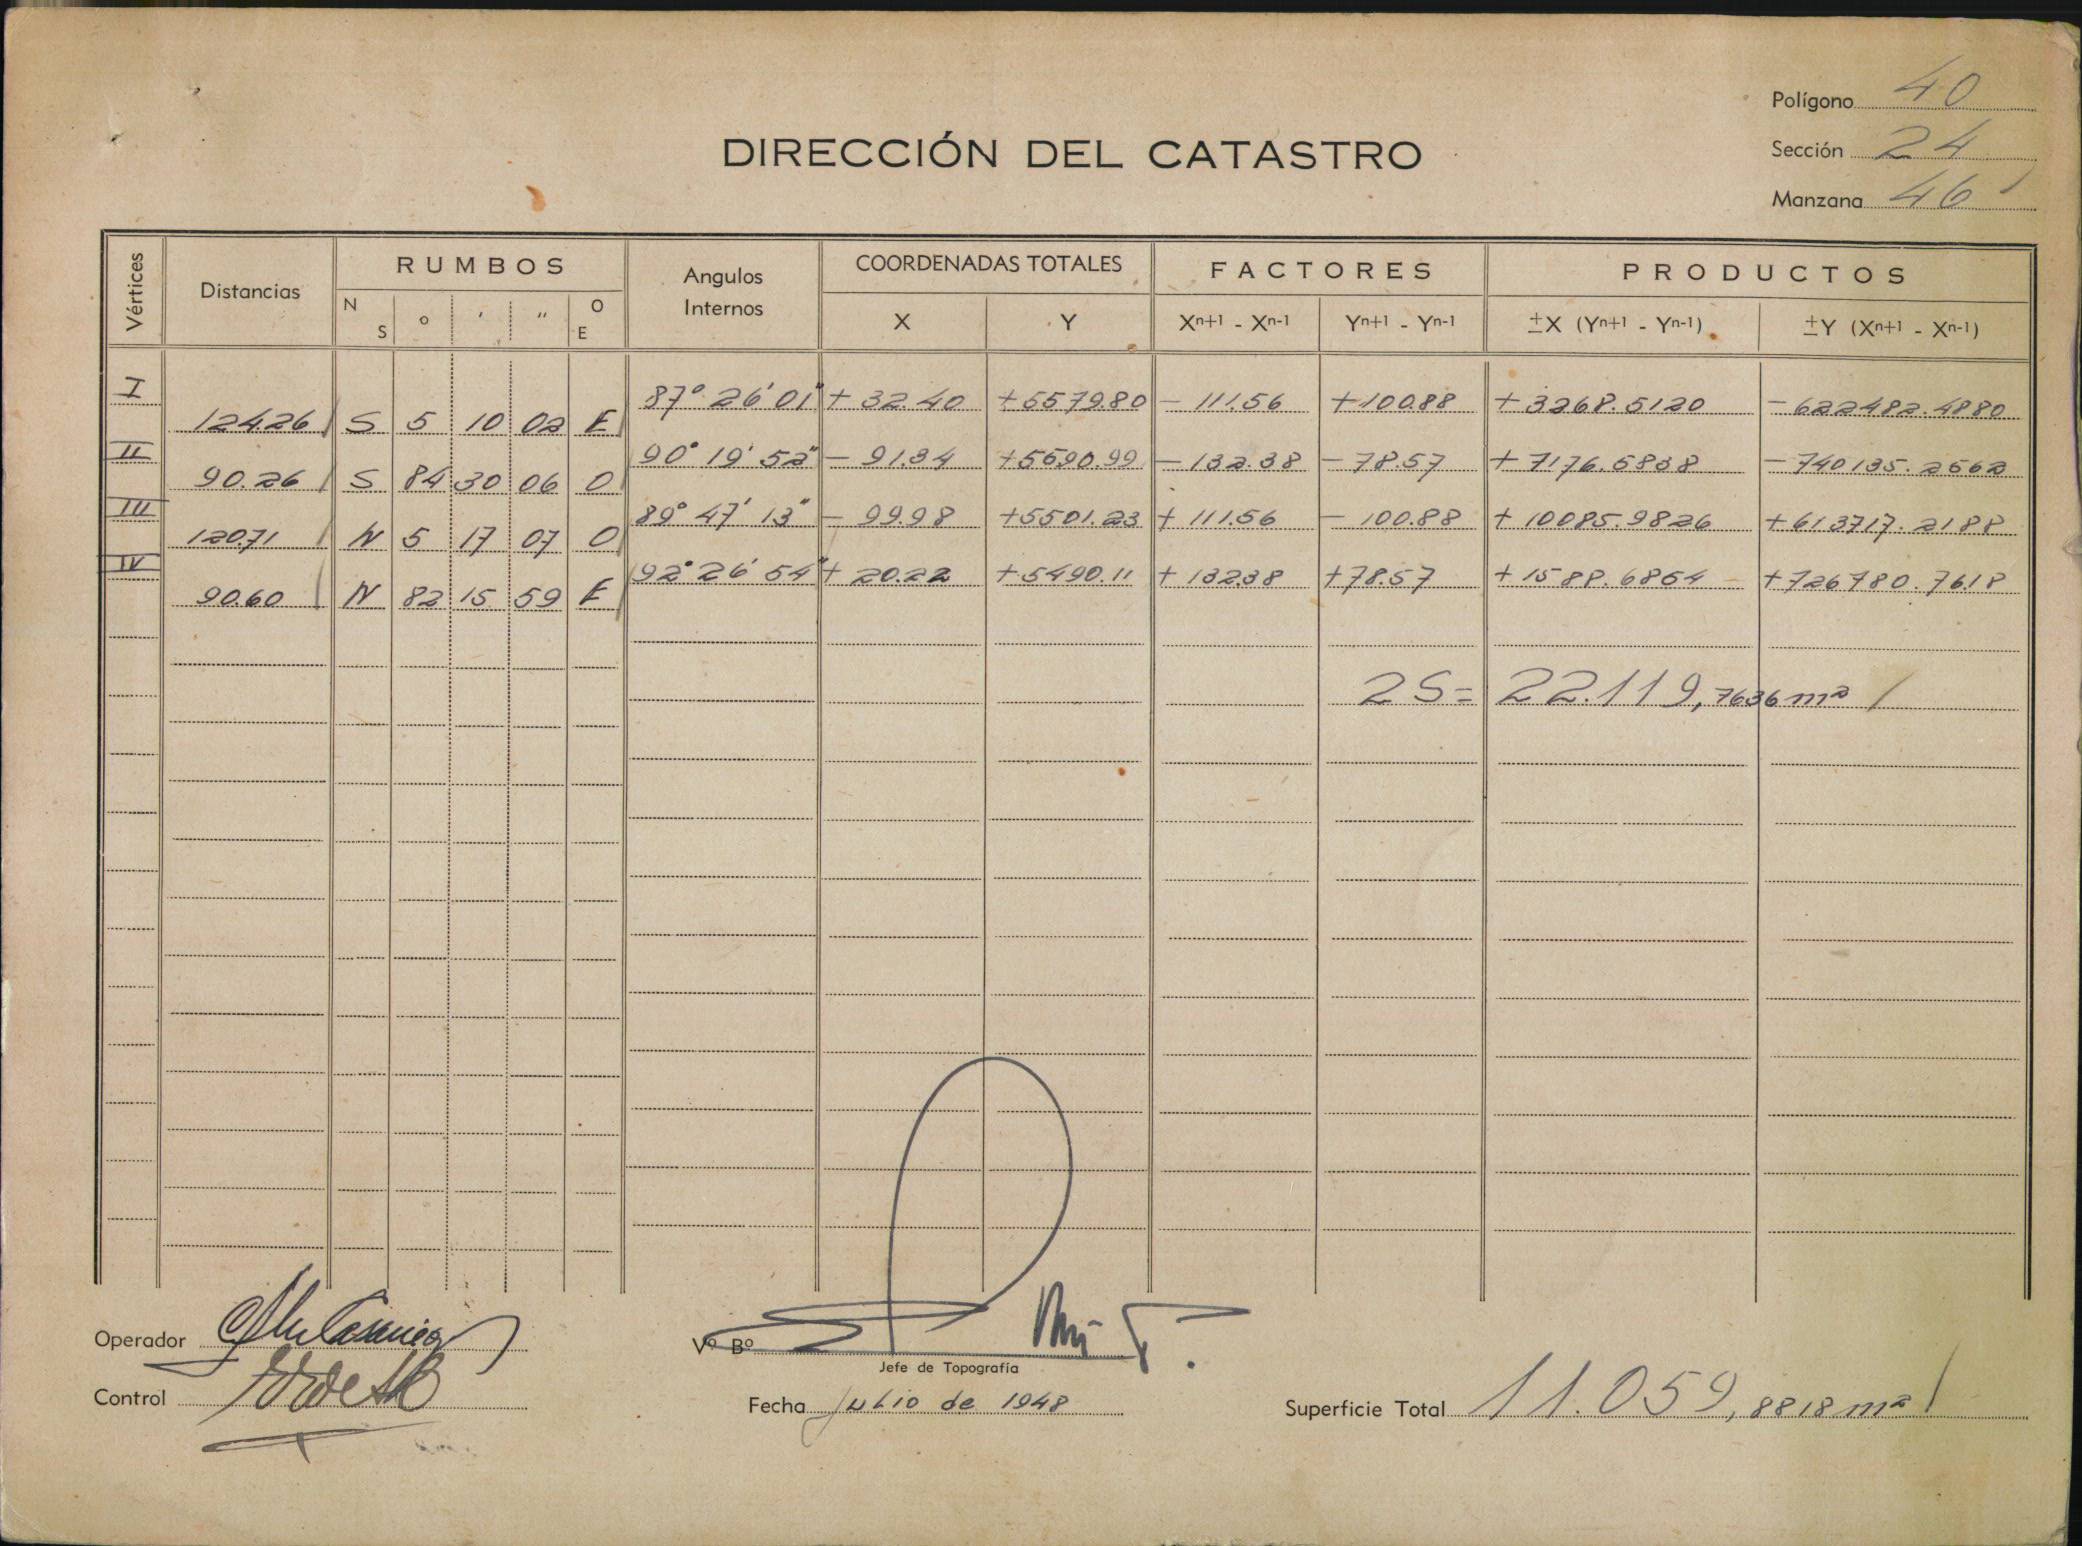 Polígono 40
DIRECCIÓN DEL CATASTRO
Sección 24
Manzana 46
Vértices Distancias RUMBOS Angulos Internos COORDENADAS TOTALES FACTORES PRODUCTOS
N S ° ' " O E X Y Xn+1 - Xn-1 Yn+1 - Yn-1 ±X (Yn+1 - Yn-1) ±Y (Xn+1 - Xn-1)
I 87° 26' 01" + 32.40 +5579.80 - 111.56 +100.88 +3268.5120 -622482.4880
124.26 S 5 10 02 E
II 90° 19' 52" - 91.34 +5590.99 -132.38 -78.57 +7176.5838 -740135.2562
90.26 S 84 30 06 O
III 89° 47' 13" - 99.98 +5501.23 +111.56 -100.88 +10085.9824 +613717.2188
120.71 N 5 17 07 O
IV 92° 26' 54" + 20.22 +5490.11 +132.38 +78.57 +1588.6854 +726780.7618
90.60 N 82 15 59 E
2S= 22.119,7636 m²
Operador
Vº Bº
Jefe de Topografía
Control
Fecha Julio de 1948
Superficie Total 11.059,8818 m²